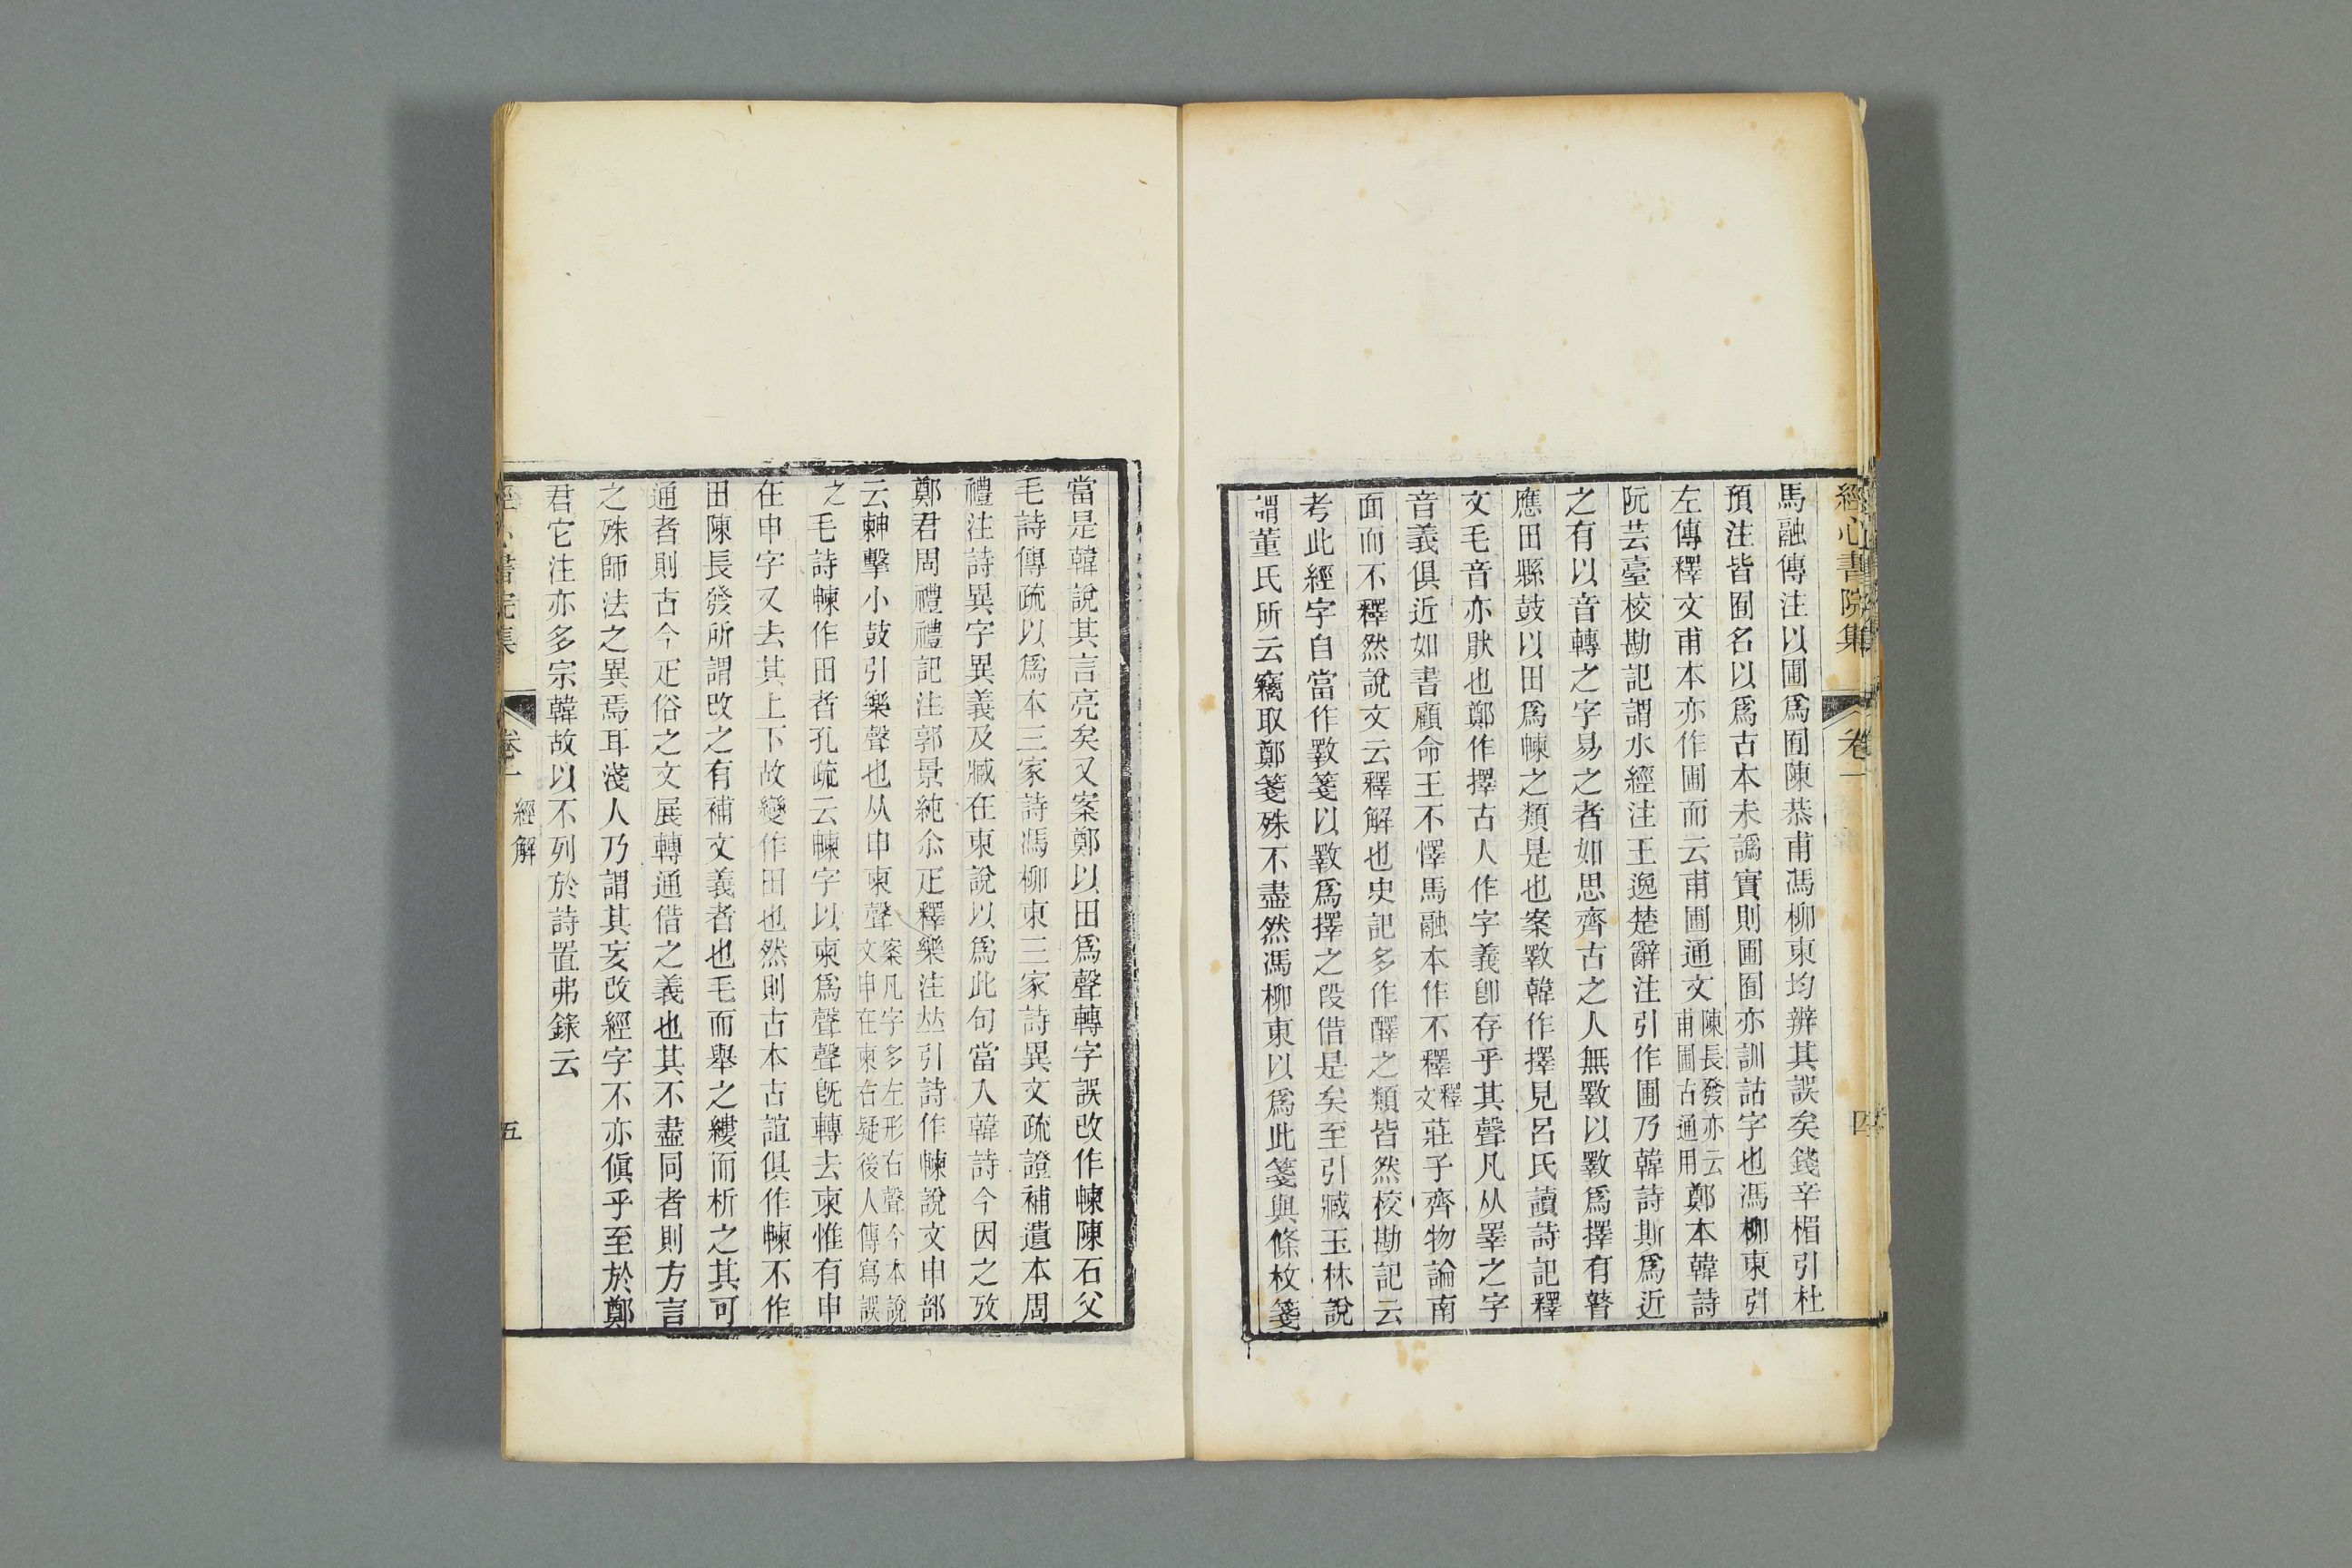 經心書院集 卷一 四
馬融傳注以圃爲囿陳恭甫馮柳東均辨其誤矣錢辛楣引杜
預注皆囿名以爲古本未譌實則圃囿亦訓詁字也馮柳東引
左傳釋文甫本亦作圃而云甫圃通文陳長發亦云甫圃古通用鄭本韓詩
阮芸臺校勘記謂水經注王逸楚辭注引作圃乃韓詩斯爲近
之有以音轉之字易之者如思齊古之人無斁以斁爲擇有瞽
應田縣鼓以田爲朄之類是也案斁韓作擇見呂氏讀詩記釋
文毛音亦猒也鄭作擇古人作字義卽存乎其聲凡从睪之字
音義俱近如書顧命王不懌馬融本作不釋釋文莊子齊物論南
面而不釋然說文云釋解也史記多作醳之類皆然校勘記云
考此經字自當作斁箋以斁爲擇之段借是矣至引臧玉林說
謂董氏所云竊取鄭箋殊不盡然馮柳東以爲此箋與條枚箋
當是韓說其言亮矣又案鄭以田爲聲轉字誤改作朄陳石父
毛詩傳疏以爲本三家詩馮柳東三家詩異文疏證補遺本周
禮注詩異字異義及臧在東說以爲此句當入韓詩今因之攷
鄭君周禮禮記注郭景純尒疋釋樂注竝引詩作朄說文申部
云朄擊小鼓引樂聲也从申柬聲案凡字多左形右聲今本說文申在柬右疑後人傳寫誤
之毛詩朄作田者孔疏云朄字以柬爲聲聲旣轉去柬惟有申
在申字又去其上下故變作田也然則古本古誼俱作朄不作
田陳長發所謂改之有補文義者也毛而舉之縷而析之其可
通者則古今疋俗之文展轉通借之義也其不盡同者則方言
之殊師法之異焉耳淺人乃謂其妄改經字不亦傎乎至於鄭
君它注亦多宗韓故以不列於詩置弗錄云
卷一 經解 五